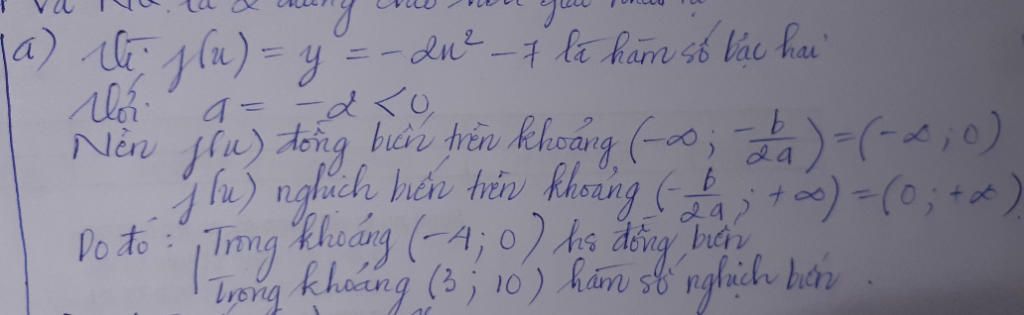 a) Vì f(x) = y = -2x² - 7 là hàm số bậc hai
Với a = -2 < 0
Nên f(x) đồng biến trên khoảng (-∞ ; -b/2a) = (-∞ ; 0)
f(x) nghịch biến trên khoảng (-b/2a ; +∞) = (0 ; +∞)
Do đó : Trong khoảng (-4 ; 0) hs đồng biến
Trong khoảng (3 ; 10) hàm số nghịch biến .